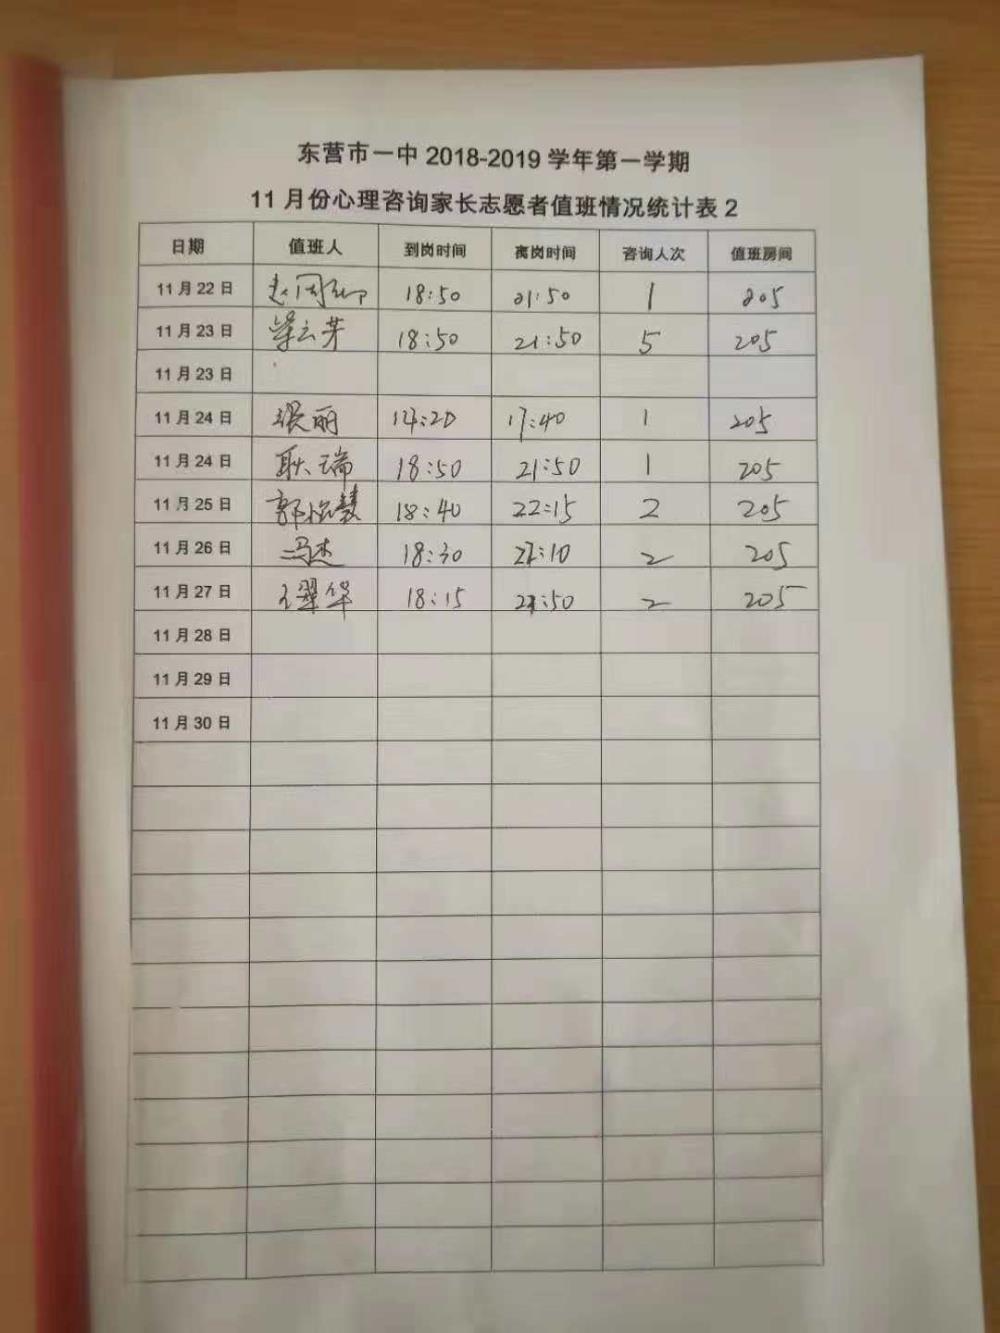 东营市一中 2018-2019 学年第一学期
11 月份心理咨询家长志愿者值班情况统计表 2
日期 值班人 到岗时间 离岗时间 咨询人次 值班房间
11 月 22 日 18:50 21:50 1 205
11 月 23 日 梁云芳 18:50 21:50 5 205
11 月 23 日
11 月 24 日 张丽 14:20 17:40 1 205
11 月 24 日 耿瑞 18:50 21:50 1 205
11 月 25 日 18:40 22:15 2 205
11 月 26 日 冯杰 18:30 :10 2 205
11 月 27 日 王翠华 18:15 :50 2 205
11 月 28 日
11 月 29 日
11 月 30 日